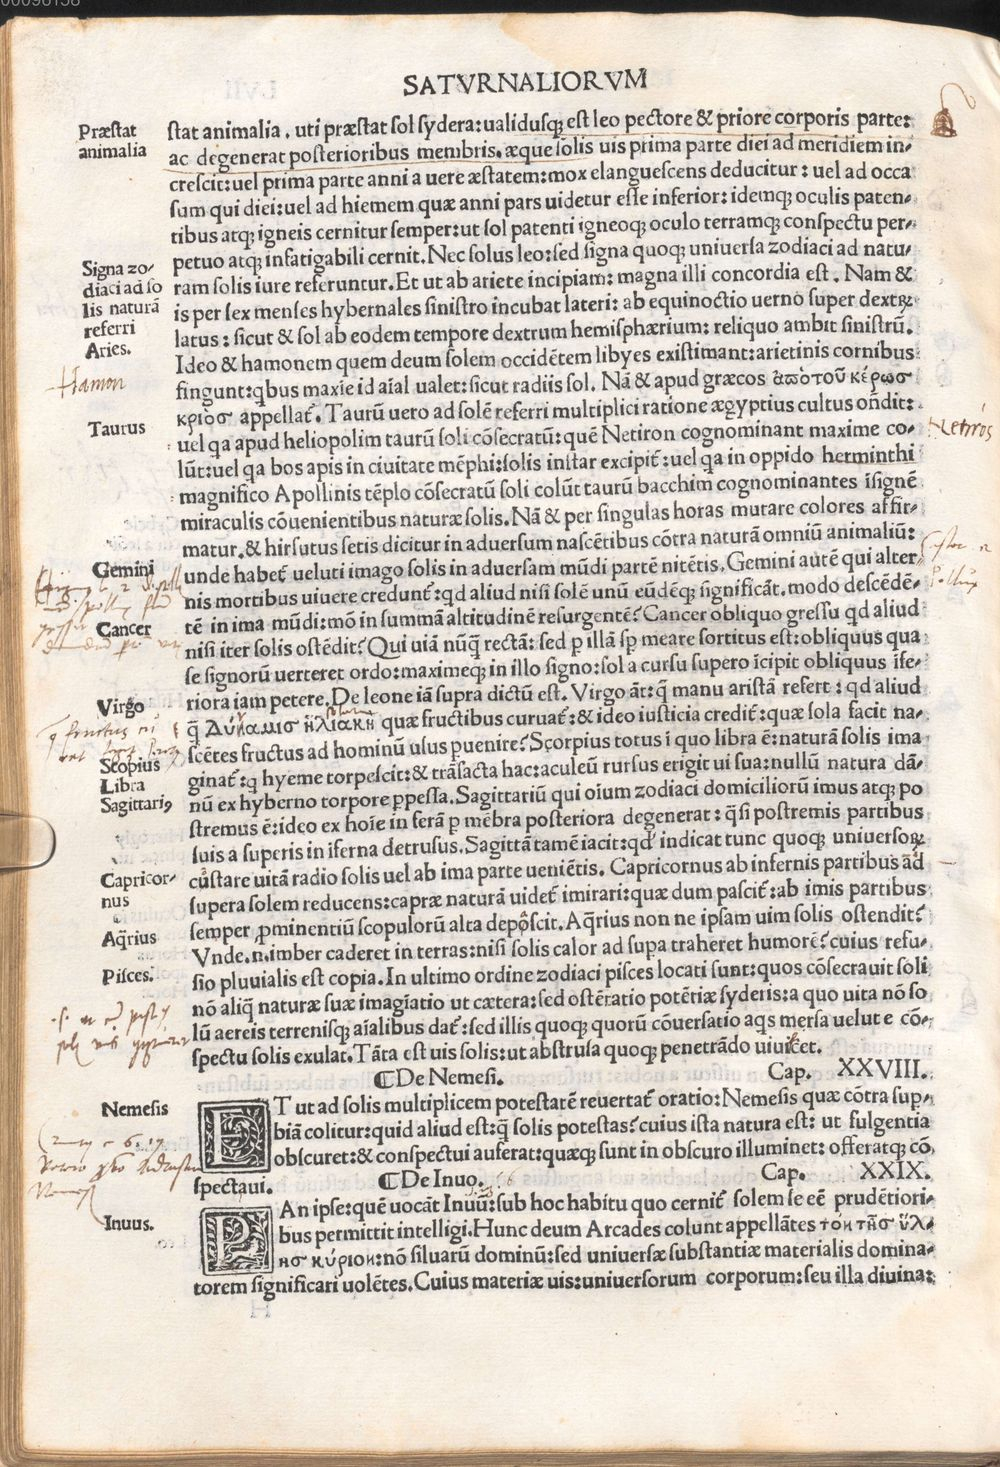 SATVRNALIORVM
Præstat
animalia
stat animalia . uti præstat sol sydera: ualidusq; est leo pectore & priore corporis parte:
ac degenerat posterioribus membris. æque solis uis prima parte diei ad meridiem in-
crescit: uel prima parte anni a uere æstatem: mox elanguescens deducitur : uel ad occa
sum qui diei: uel ad hiemem quæ anni pars uidetur esse inferior: idemq; oculis paten-
tibus atq; igneis cernitur semper: ut sol patenti igneoq; oculo terramq; conspectu per-
petuo atq; infatigabili cernit. Nec solus leo: sed signa quoq; uniuersa zodiaci ad natu-
Signa zo-
diaci ad so
lis naturā
referri
Aries.
ram solis iure referuntur. Et ut ab ariete incipiam: magna illi concordia est . Nam &
is per sex menses hybernales sinistro incubat lateri: ab equinoctio uerno super dextrꝝ
latus : sicut & sol ab eodem tempore dextrum hemisphærium: reliquo ambit sinistrū.
Ideo & hamonem quem deum solem occidētem libyes existimant: arietinis cornibus
Hamon
fingunt: qbus maxīe id aīal ualet: sicut radiis sol. Nā & apud græcos ἀπὸ τοῦ κέρωσ
κριὸσ appellat̄. Taurū uero ad solē referri multiplici ratione ægyptius cultus oñdit:
Taurus
uel qa apud heliopolim taurū soli cōsecratū: quē Netiron cognominant maxime co-
Netirós
lūt: uel qa bos apis in ciuitate mēphi: solis instar excipit̄ : uel qa in oppido herminthi
magnifico Apollinis tēplo cōsecratū soli colūt taurū bacchim cognominantes īsignē
miraculis cōuenientibus naturæ solis. Nā & per singulas horas mutare colores affir-
matur. & hirsutus setis dicitur in aduersum nascētibus cōtra naturā omniū animaliū:
Gemini
unde habet̄ ueluti imago solis in aduersam mūdi partē nitētis. Gemini autē qui alter
nis mortibus uiuere credunt̄: qd aliud nisi solē unū eūdēq; significāt. modo descēdē-
Cancer
tē in ima mūdi: mō in summā altitudinē resurgentē? Cancer obliquo gressu qd aliud
nisi iter solis ostēdit? Qui uiā nūq̄ rectā: sed p illā sp̄ meare sortitus est: obliquus qua
se signorū uerteret ordo: maximeq; in illo signo: sol a cursu supero īcipit obliquus īfe-
riora iam petere. De leone iā supra dictū est. Virgo āt: q̄ manu aristā refert : qd aliud
Virgo
q̄ Δύναμισ ἡλιακὴ quæ fructibus curuat̄: & ideo iusticia credit̄: quæ sola facit na-
scētes fructus ad hominū usus puenire? Scorpius totus ī quo libra ē: naturā solis ima
Scopius
Libra
Sagittariꝯ
ginat̄: q hyeme torpescit: & trāsacta hac: aculeū rursus erigit ui sua: nullū natura dā-
nū ex hyberno torpore ppessa. Sagittariū qui oium zodiaci domiciliorū imus atq; po
stremus ē: ideo ex hoīe in ferā p mēbra posteriora degenerat : q̄si postremis partibus
suis a superis in iferna detrusus. Sagittā tamē iacit: qd indicat tunc quoq; uniuersoꝝ
cōstare uitā radio solis uel ab ima parte ueniētis. Capricornus ab infernis partibus ad
Capricor-
nus
supera solem reducens: capræ naturā uidet̄ imirari: quæ dum pascit̄: ab imis partibus
semper pminentiū scopulorū alta deposcit. Aq̄rius non ne ipsam uim solis ostendit?
Aq̄rius
Vnde. n. imber caderet in terras: nisi solis calor ad supa traheret humorē? cuius refu-
sio pluuialis est copia. In ultimo ordine zodiaci pisces locati sunt: quos cōsecrauit soli
Pisces.
nō aliq̄ naturæ suæ imagīatio ut cætera: sed ostētatio potētiæ syderis: a quo uita nō so
lū aereis terrenisq; aīalibus dat̄: sed illis quoq; quorū cōuersatio aqs mersa uelut e cō-
spectu solis exulat. Tāta est uis solis: ut abstrusa quoq; penetrādo uiuificet.
¶De Nemesi. Cap. XXVIII.
Nemesis
ET ut ad solis multiplicem potestatē reuertat̄ oratio: Nemesis quæ cōtra sup-
biā colitur: quid aliud est: q̄ solis potestas? cuius ista natura est: ut fulgentia
obscuret: & conspectui auferat: quæq; sunt in obscuro illuminet: offeratq; cō
spectaui. ¶De Inuo. Cap. XXIX.
Inuus.
PAn ipse: quē uocāt Inuū: sub hoc habitu quo cernit̄ solem se eē prudētiori-
bus permittit intelligi. Hunc deum Arcades colunt appellātes τὸν τῆσ ὕλ-
ησ κύριον: nō siluarū dominū: sed uniuersæ substantiæ materialis domina-
torem significari uolētes. Cuius materiæ uis: uniuersorum corporum: seu illa diuina: